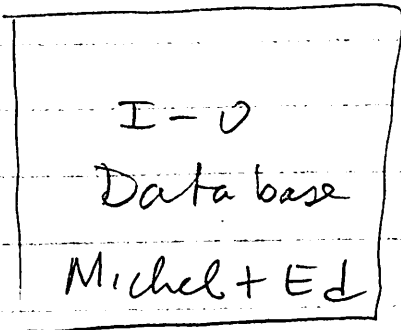 I-O
Database
Michel + Ed